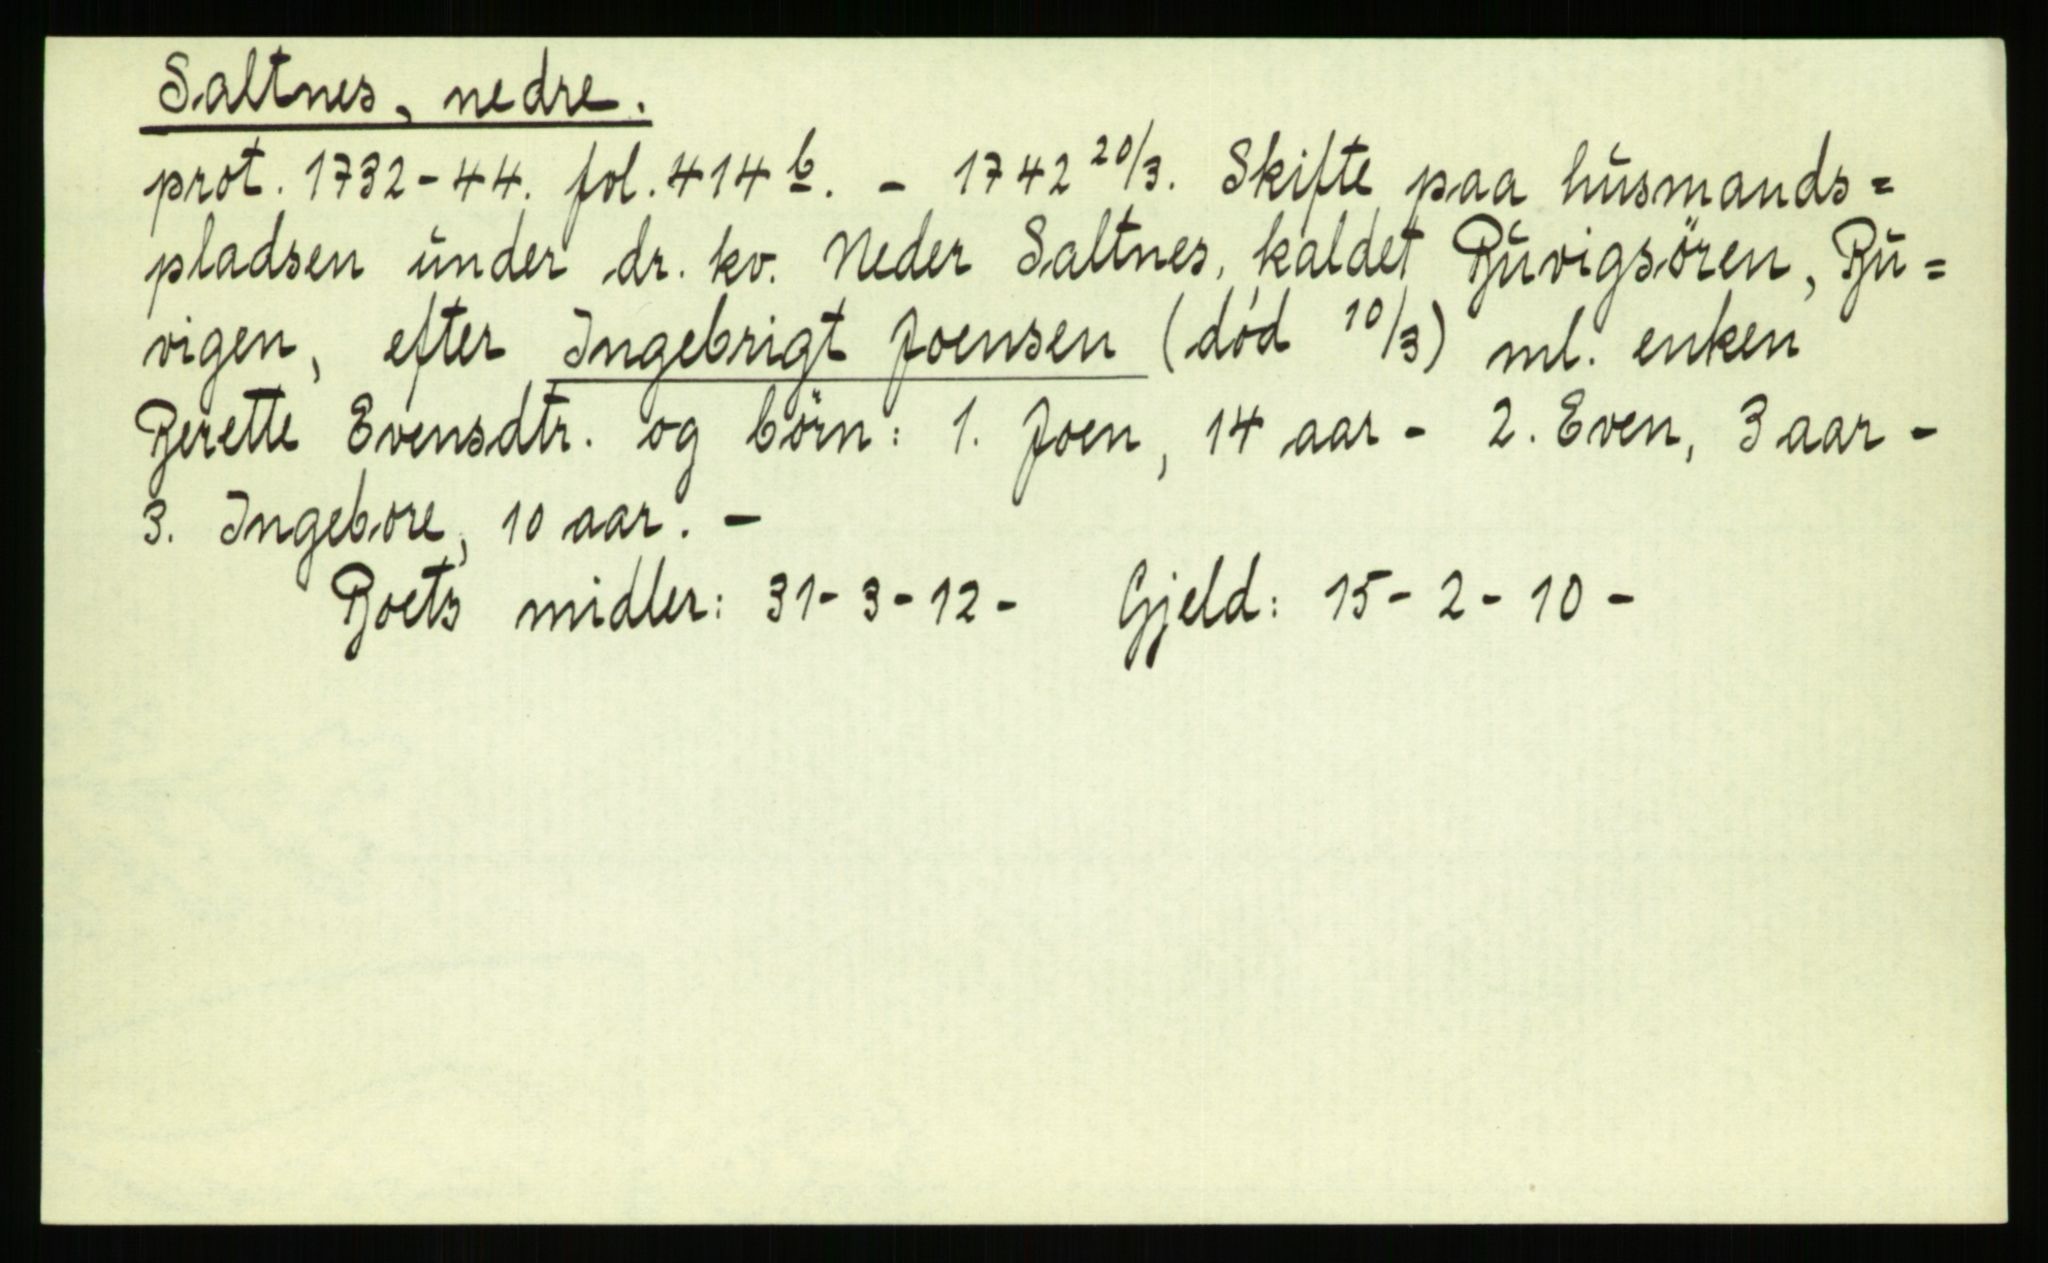 Saltnes, nedre.
prot. 1732-44. fol. 414 b. - 1742 20/3. Skifte paa husmands=
pladsen under dr. kv. Neder Saltnes, kaldet Buvigsören, Bu=
vigen, efter Ingebrigt Joensen (død 10/3) ml. enken
Berette Evensdtr. og börn: 1. Joen, 14 aar - 2. Even, 3 aar -
3. Ingebore, 10 aar. -
Boets midler: 31-3-12- Gjeld: 15-2-10-